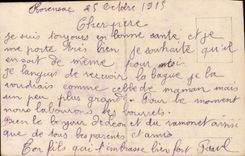 25 Octobre 1915
Cher père
je suis toujours en bonne santé et je
me porte très bien je souhaite qu'il
en soit de même pour toi
Je languis de recevoir la bague je la
voudrais comme celle de maman mais
un peu plus grande. Pour le moment
nous labourons les
bien le bonjour et du ramonet ainsi
que de tous les parents et amis
Ton fils qui t'embrasse bien fort Paul